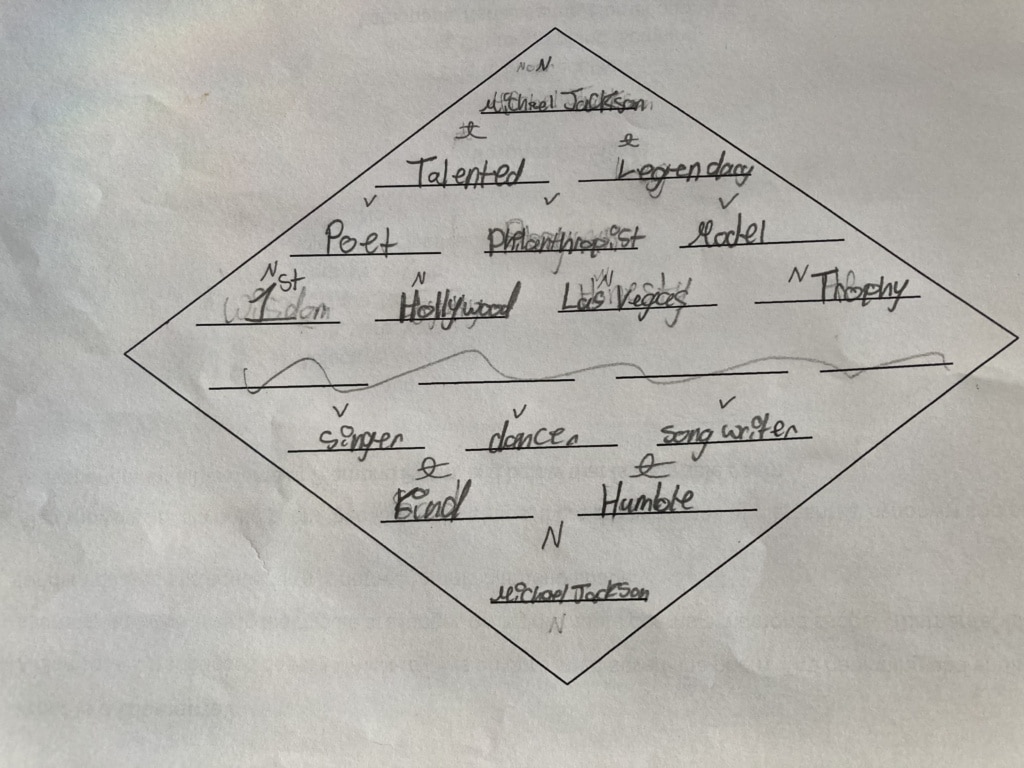 NoN
Michael Jackson
Talented Legendary
v v v
Poet Philanthropist Model
N N N N
1st Hollywood Las Vegas Trophy
v v v
singer dancer song writer
kind Humble
N
Michael Jackson
N